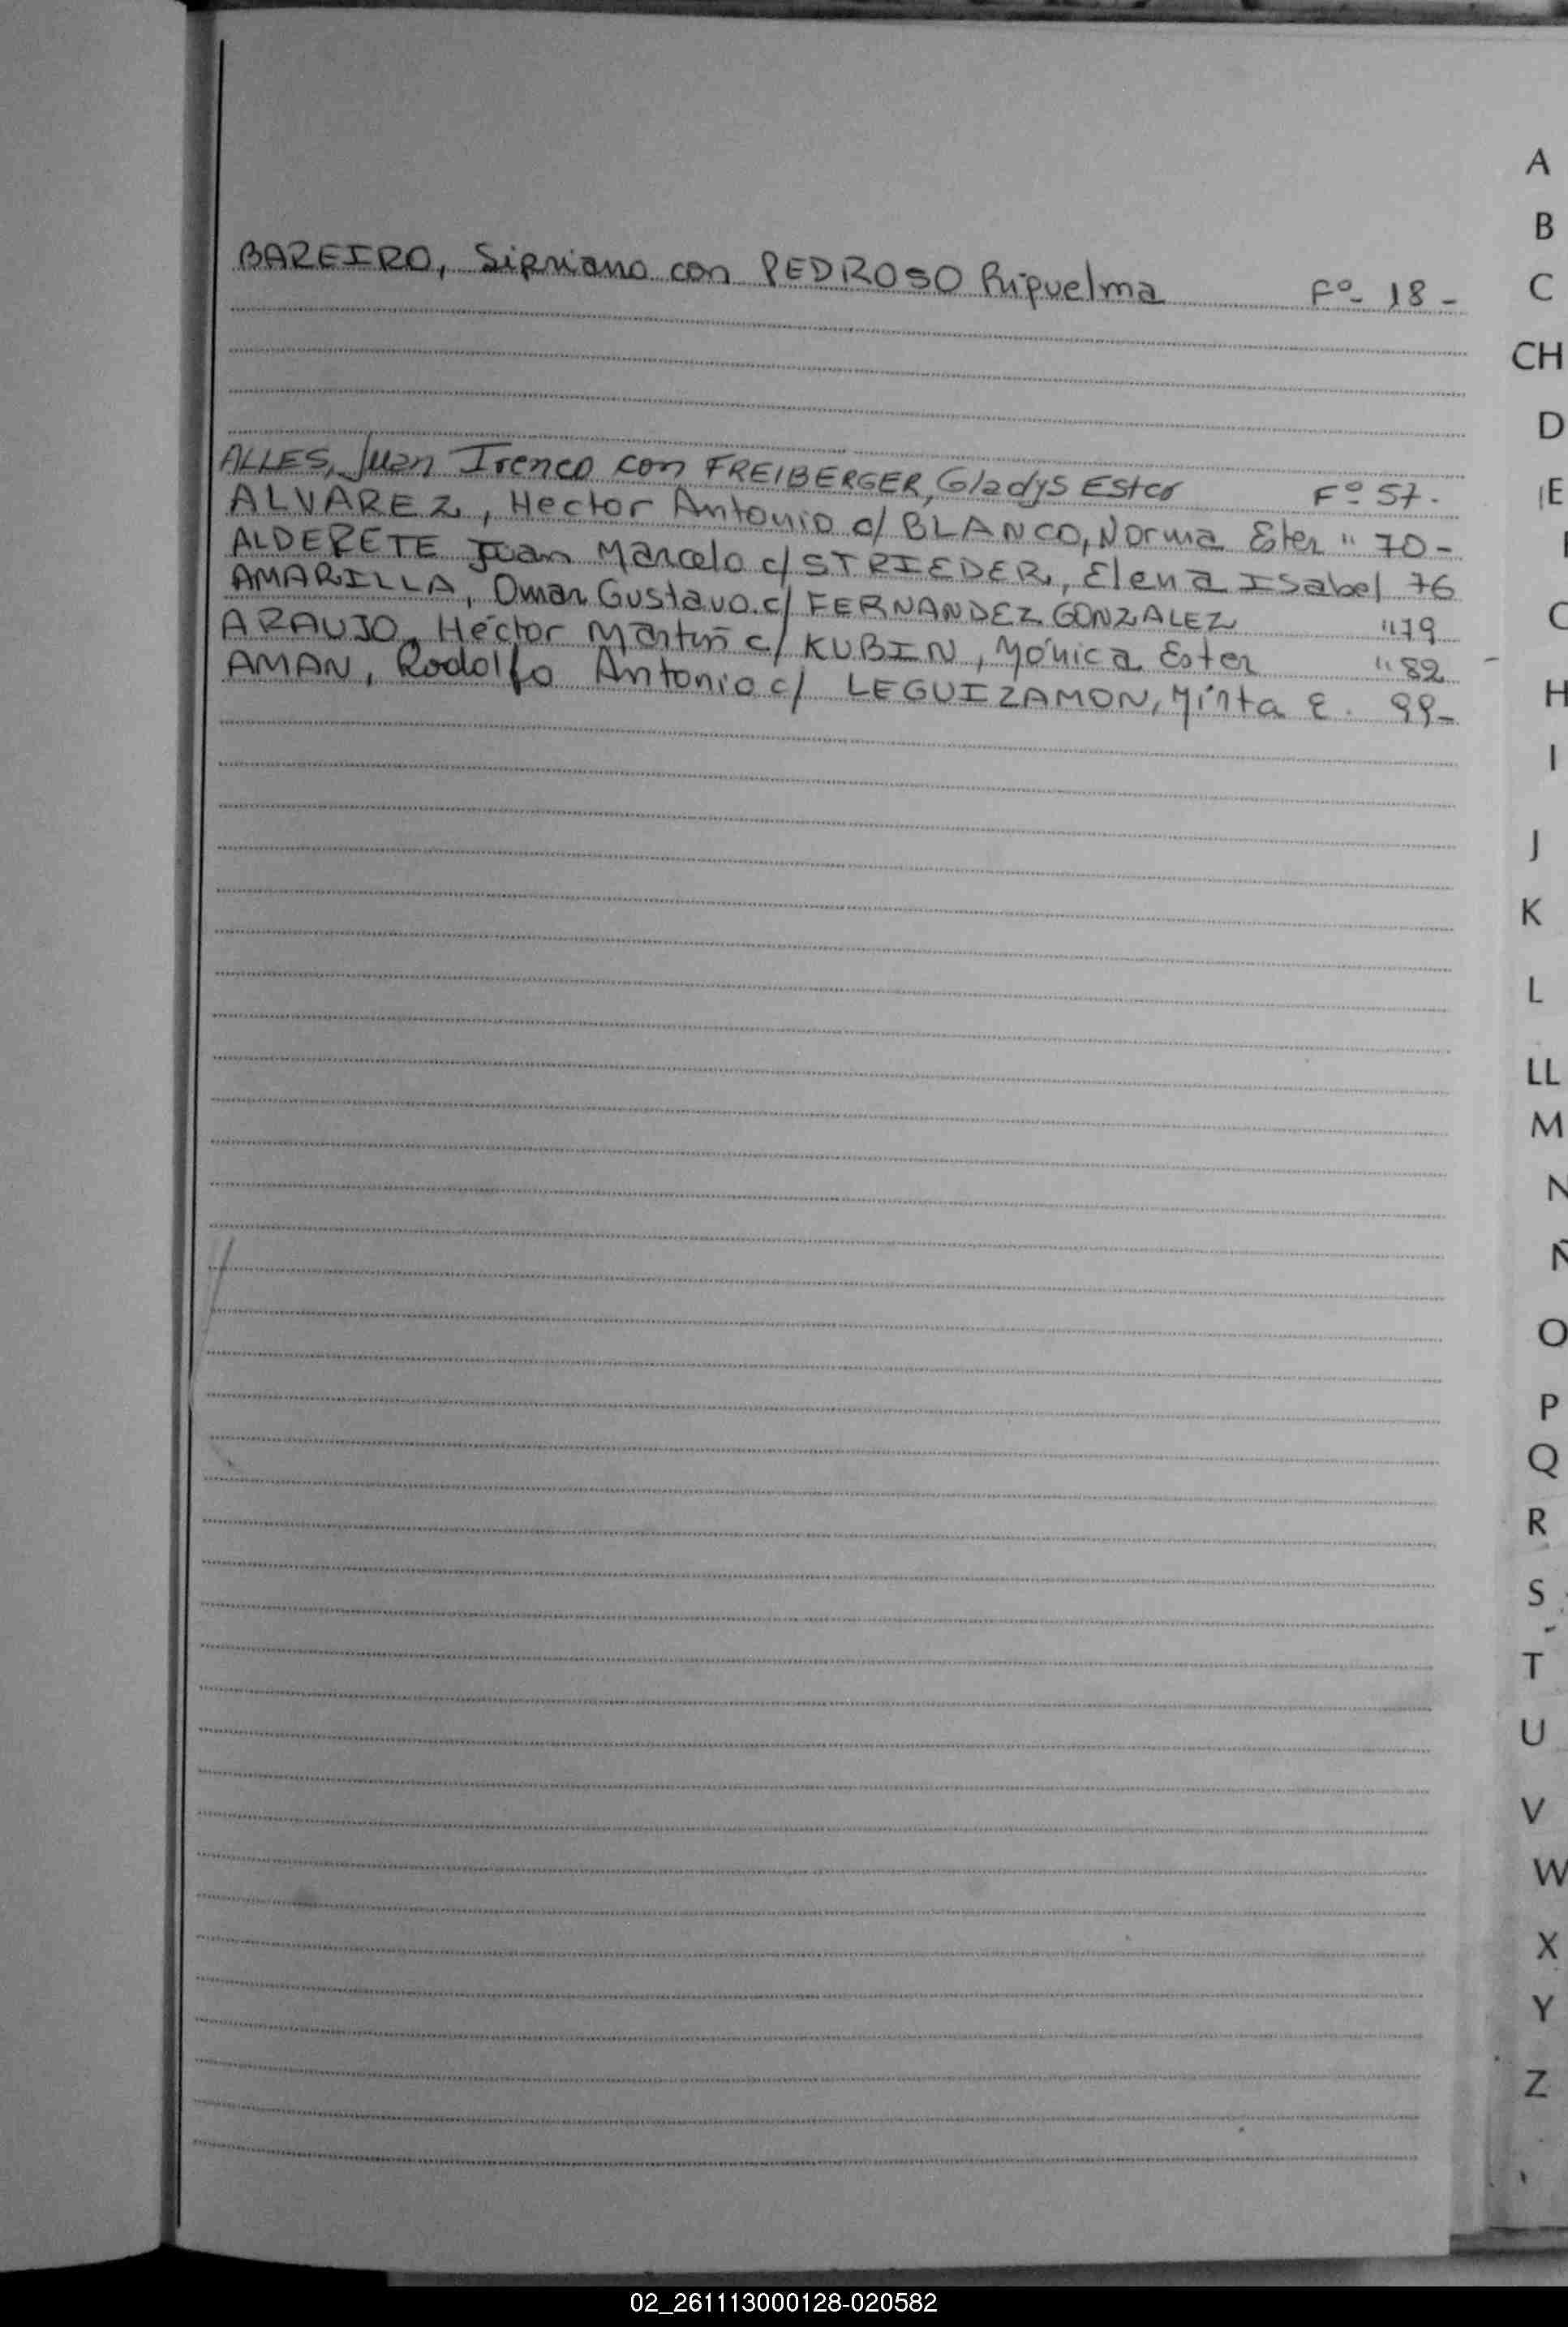 BAREIRO, Sipriano con PEDROSO Riquelma Fº 18 -
ALLES, Juan Ireneo con FREIBERGER, Gladys Ester Fº 57.
ALVAREZ, Hector Antonio c/ BLANCO, Norma Ester " 70 -
ALDERETE Juan Marcelo c/ STRIEDER, Elena Isabel 76
AMARILLA, Omar Gustavo c/ FERNANDEZ GONZALEZ "79
ARAUJO, Héctor Martín c/ KUBIN, Mónica Ester "82
AMAN, Rodolfo Antonio c/ LEGUIZAMON, Mirta E. 99-
A
B
C
CH
D
E
H
I
J
K
L
LL
M
N
Ñ
O
P
Q
R
S
T
U
V
W
X
Y
Z
02_261113000128-020582